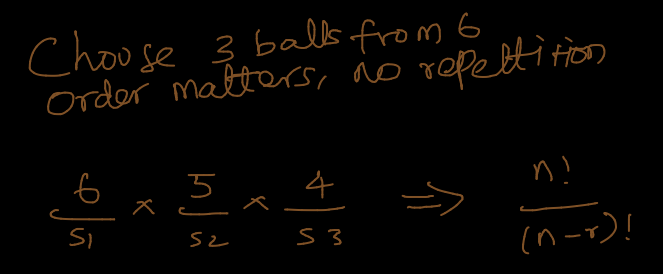 Choose 3 balls from 6
order matters, no repettition
6/s1 × 5/s2 × 4/s3 ⇒ n!/(n-r)!